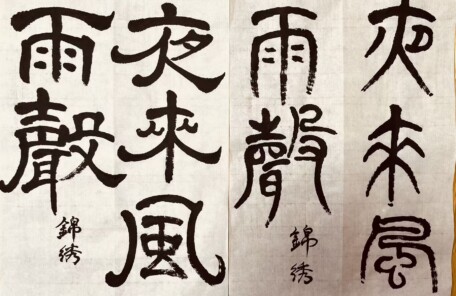 夜來風
雨聲
錦绣
夜來風
雨聲
錦绣